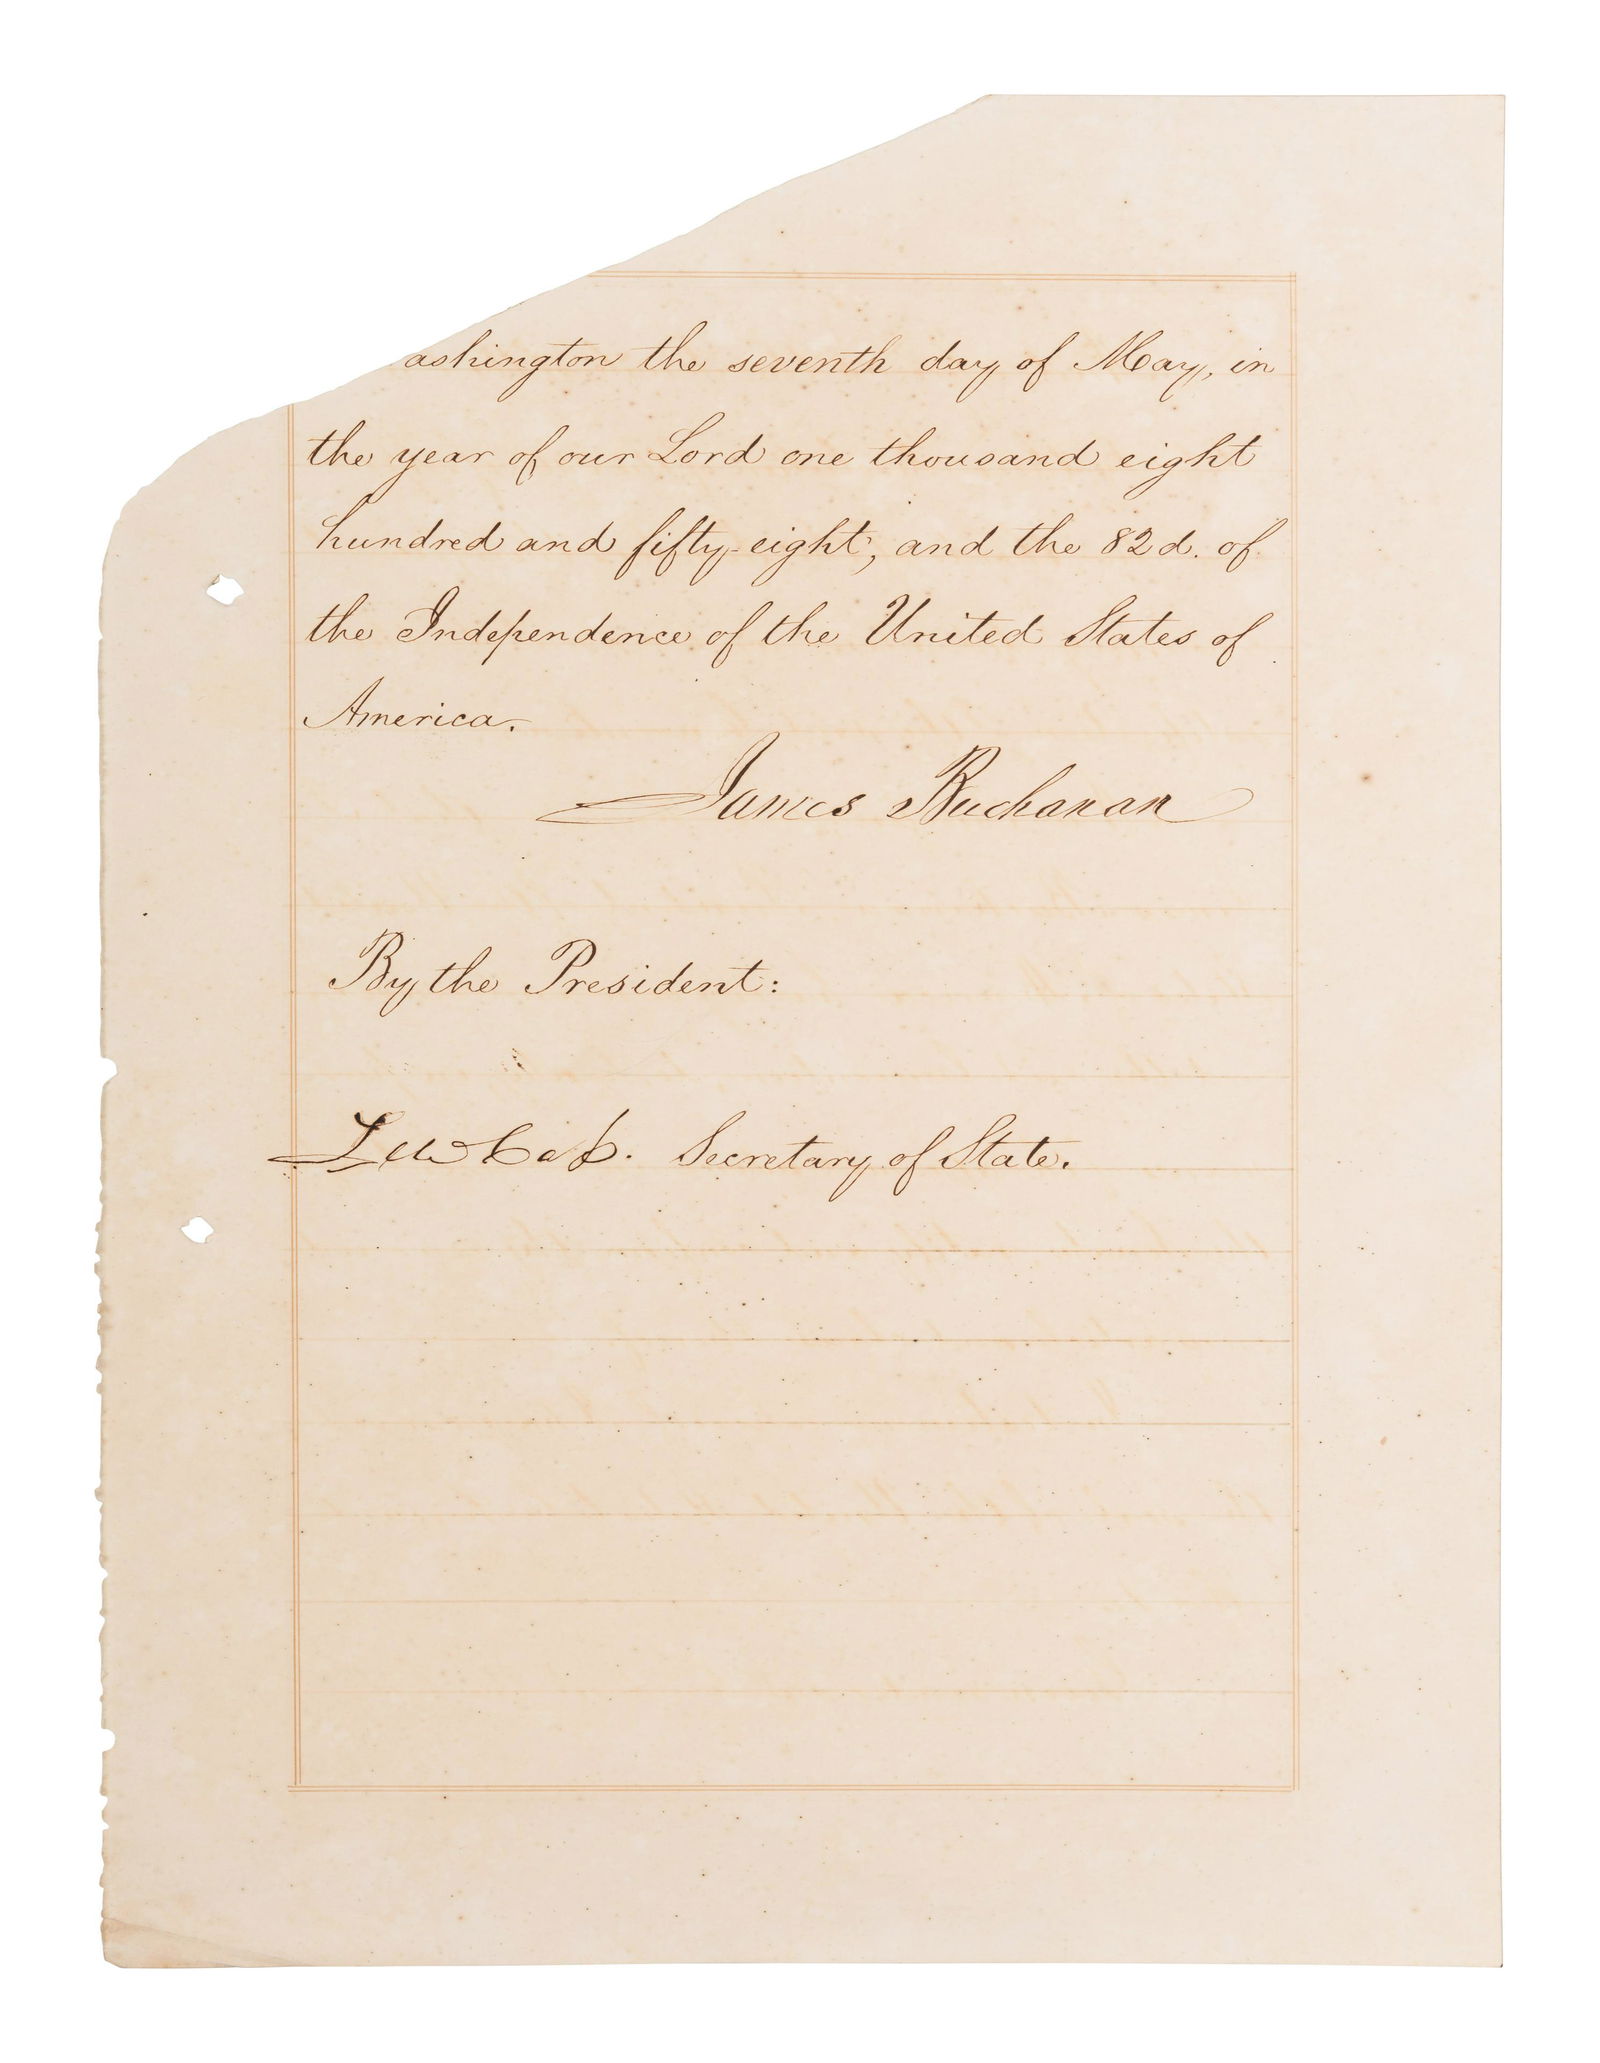 ashington the seventh day of May, in
the year of our Lord one thousand eight
hundred and fifty-eight, and the 82d. of
the Independence of the United States of
America.
James Buchanan
By the President:
Lew Cass. Secretary of State.